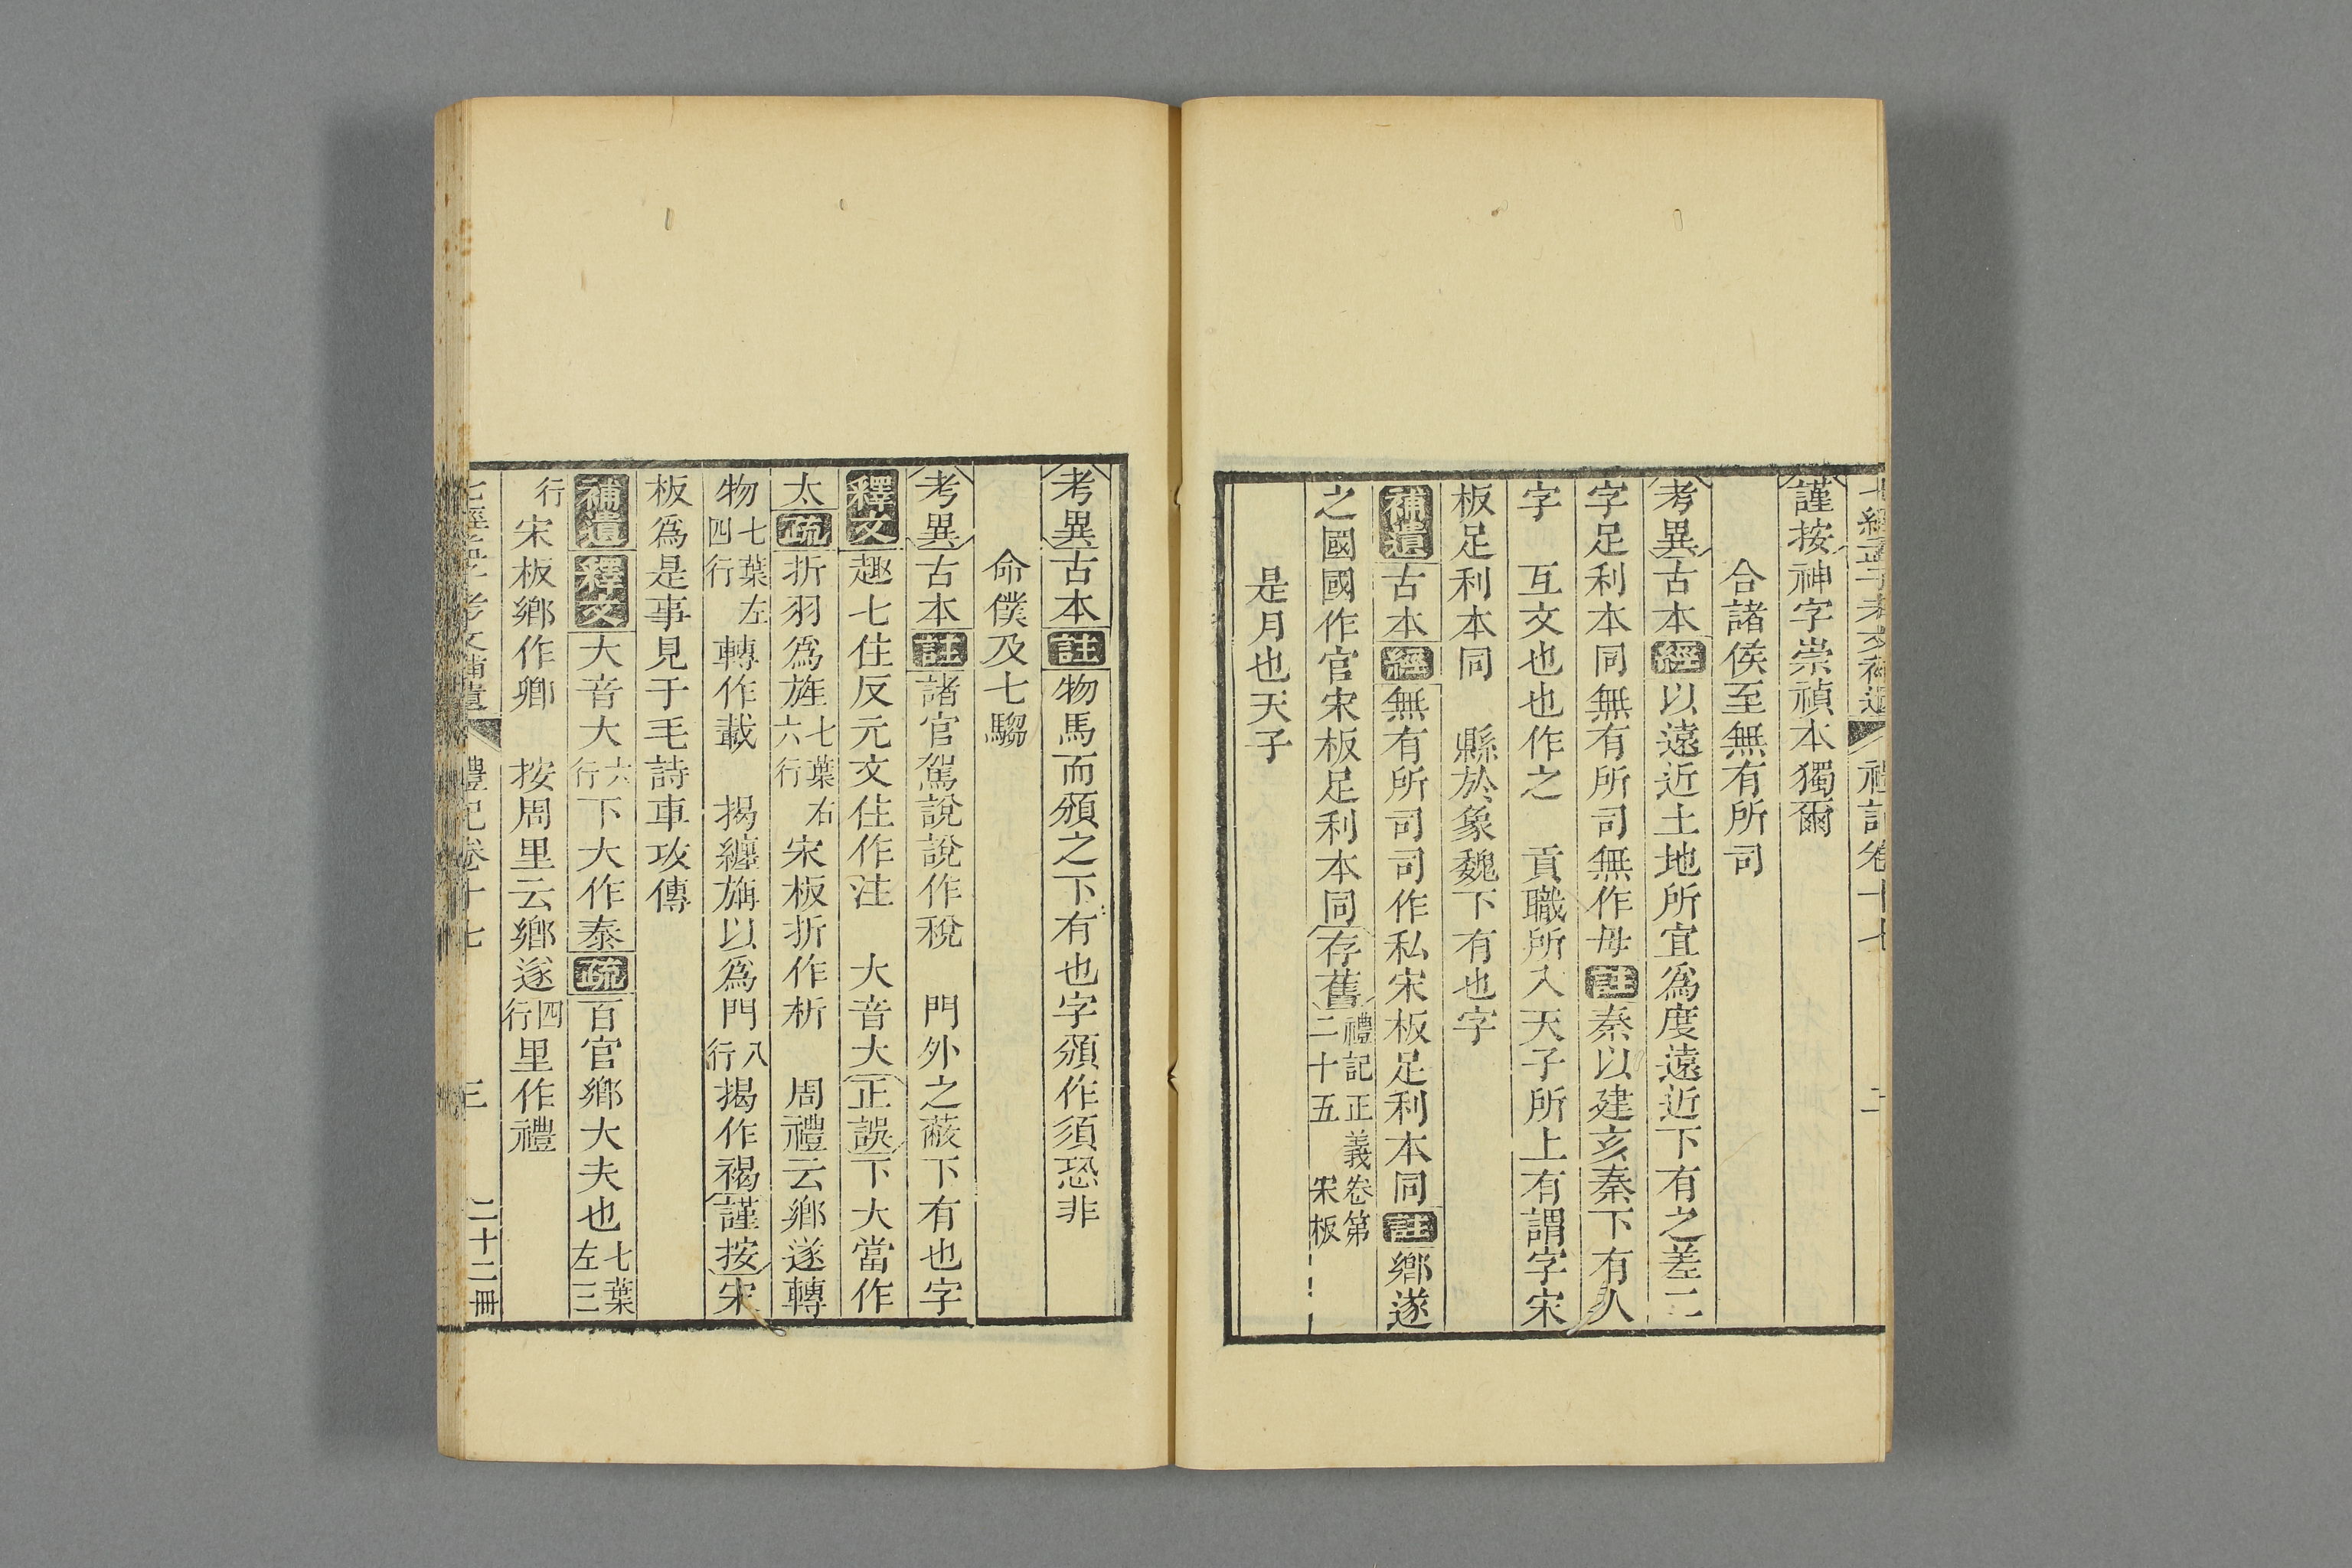 七經孟子考文補遺 禮記卷十七 二
謹按神字崇禎本獨爾
合諸侯至無有所司
考異古本經以遠近土地所宜爲度遠近下有之差二
字足利本同無有所司無作毋註秦以建亥秦下有人
字 互文也也作之 貢職所入天子所上有謂字宋
板足利本同 縣於象魏下有也字
補遺古本經無有所司司作私宋板足利本同註鄉遂
之國國作官宋板足利本同存舊禮記正義卷第二十五 宋板
是月也天子
考異古本註物馬而頒之下有也字頒作須恐非
命僕及七騶
考異古本註諸官駕說說作稅 門外之蔽下有也字
釋文趣七住反元文住作注 大音大正誤下大當作
太疏折羽爲旌七葉右六行宋板折作析 周禮云鄉遂轉
物七葉左四行轉作載 揭纏旃以爲門八行揭作褐謹按宋
板爲是事見于毛詩車攻傳
補遺釋文大音大六行下大作泰疏百官鄉大夫也七葉左三
行宋板鄉作卿 按周里云鄉遂四行里作禮
七經孟子考文補遺 禮記卷十七 三 二十二冊